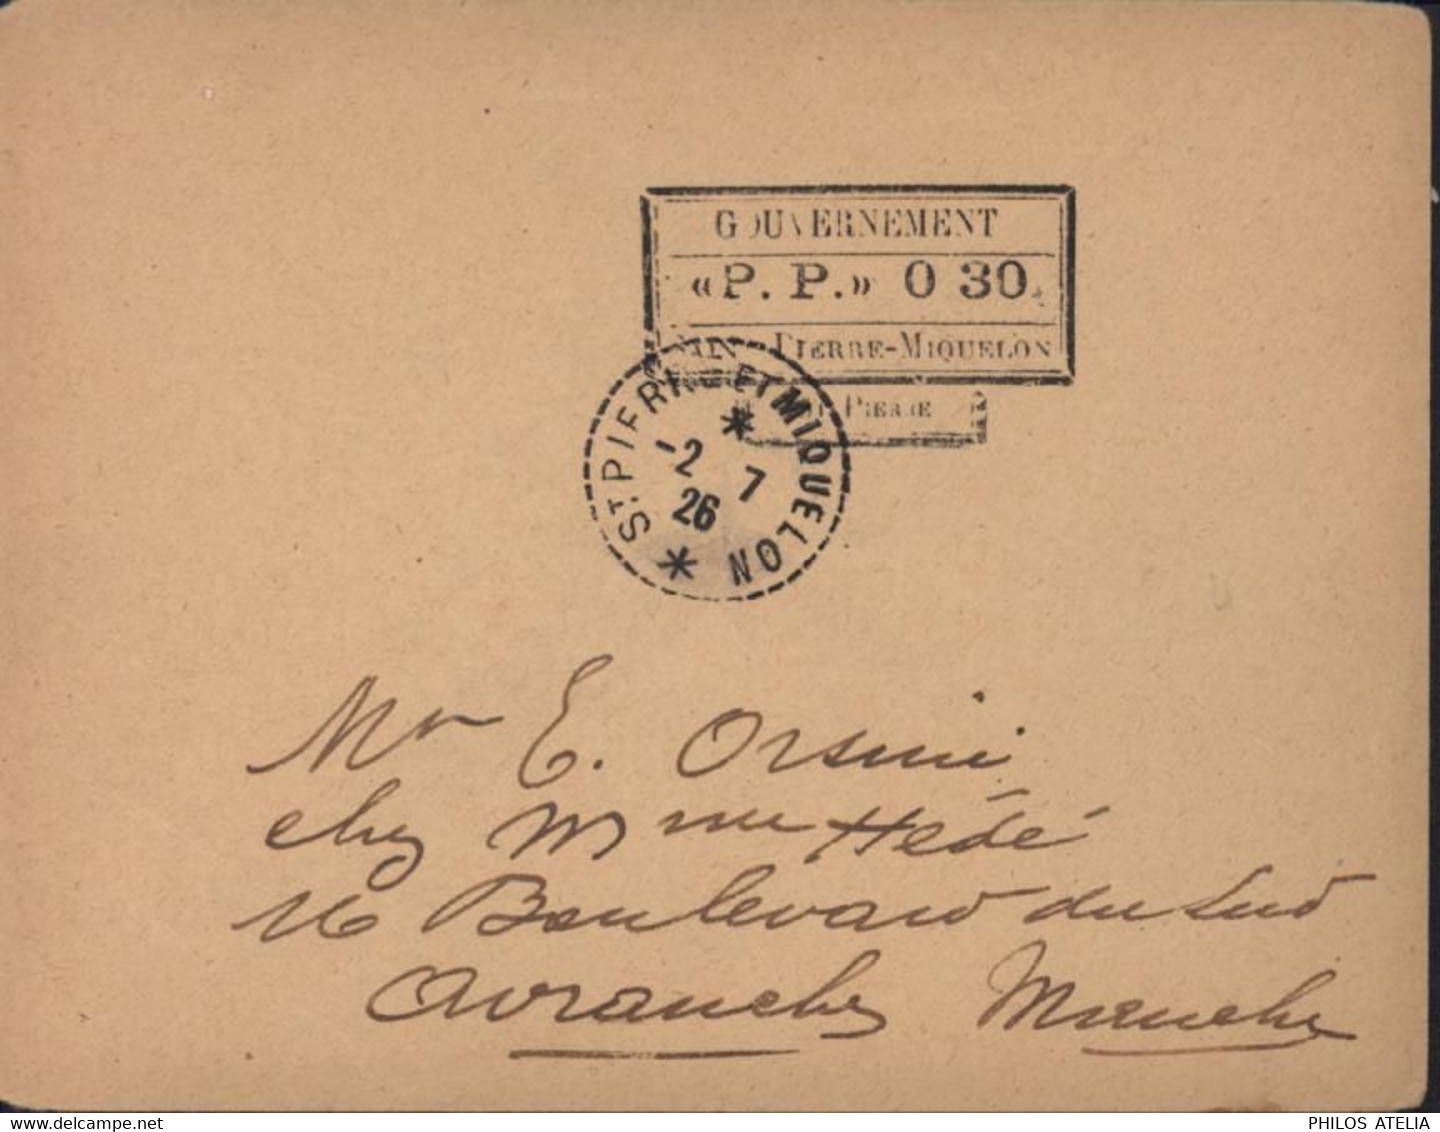 GOUVERNEMENT
«P. P.» 0 30
PIERRE-MIQUELON
PIERRE
ST PIERRE ET MIQUELON
-2 7
26
Mr E. Orsini
chez Mme Hédé
16 Boulevard du Sud
Avranches Manche
PHILOS ATELIA